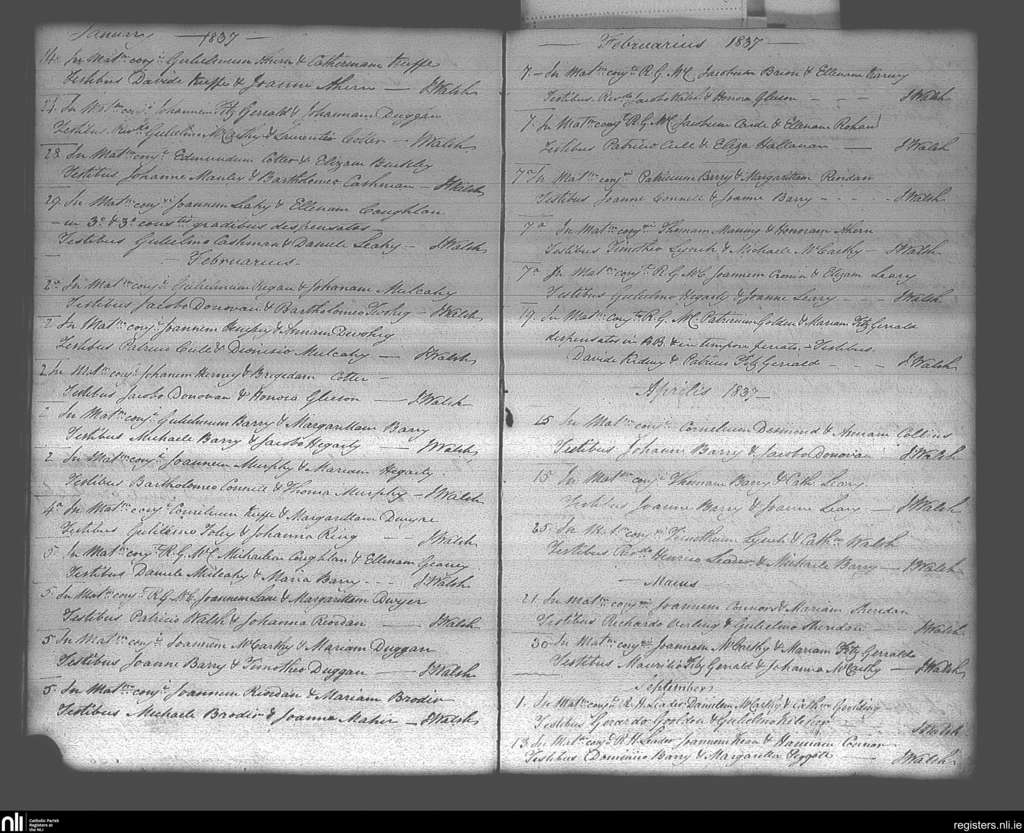 Januarii — 1837 —
14. In Matm conj. Gulielmum Ahern & Catherinam Keeffe
Testibus Davide Keeffe & Joanna Ahern — JWalsh
21. In Matm conj. Johannem Fitz Gerald & Johannam Duggan
Testibus Revdo Gulielmo McCarthy & Laurentio Cotter — JWalsh
28 In Matm conj. Edmundum Cotter & Elizam Buckley
Testibus Johanne Manley & Bartholomeo Cashman — JWalsh
29 In Matm conj. Joannem Leahy & Ellenam Coughlan
— in 3o & 3o gradibus dispensatis —
Testibus Gulielmo Cashman & Daniele Leahy — JWalsh
— Februarius —
2a In Matm conj. Gulielmum Regan & Johanam Mulcahy
Testibus Jacobo Donovan & Bartholomeo — JWalsh
2 In Matm conj. Joannem & Annam
Testibus Patricio & Dionisio Mulcahy — JWalsh
2 In Matm conj. Johanem & Brigidam Cotter —
Testibus Jacobo Donovan & Honora Gleeson — JWalsh
2 In Matm conj. Gulielmum Barry & Margarittam Barry
Testibus Michaele Barry & Jacobo Hegarty — JWalsh
2 In Matm conj. Joannem Murphy & Mariam Hegarty
Testibus Bartholomeo Connell & Thoma Murphy — JWalsh
4a In Matm conj. Cornelium Keeffe & Margarittam Dwyre
Testibus Gulielmo Foley & Johanna Ring — JWalsh
5 In Matm conj. R.G. Mc. Michaelem Coughlan & Ellenam Geaney
Testibus Daniele Mulcahy & Maria Barry - - - JWalsh
5 In Matm conj. R.G. Mc. Joannem Lane & Margarittam Dwyer
Testibus Patricio Walsh & Johanna Riordan — JWalsh
5 In Matm conj. Joannem McCarthy & Mariam Duggan
Testibus Joanne Barry & Timotheo Duggan — JWalsh
5 In Matm conj. Joannem Riordan & Mariam Broder
Testibus Michaele Broder & Joanna Mahir — JWalsh
— Februarius 1837 —
7 — In Matm conj. R.G. Mc. Jacobum Bacon & Ellenam
Testibus Revdo Jacobo Walsh & Honora Gleeson - - - JWalsh
7. In Matm conj. R.G. Mc. Jacobum & Ellenam Rohan
Testibus Patricio & Eliza Hallanan — JWalsh
7a In Matm conj. Patricium Barry & Margaritam Riordan
Testibus Joanne Connell & Joanne Barry - - - - JWalsh
7a In Matm conj. Thomam & Honoram Ahern
Testibus Timotheo Lynch & Michaele McCarthy — JWalsh
7a In Matm conj. R.G. Mc. Joannem Cronin & Elizam Leary
Testibus Gulielmo Hegarty & Joanne Leary — - - JWalsh
19. In Matm conj. R.G. Mc. Patricium Golden & Mariam Fitz Gerald
dispensatis in BB & in tempore ferrato, — Testibus
Davide & Patricio Fitz Gerald - - . JWalsh
— Aprilis 1837 —
15 In Matm conj. Cornelium Desmond & Annam Collins
Testibus Johanne Barry & Jacobo Donovan JWalsh
15 In Matm conj. Thomam Barry & Cath. Leary
Testibus Joanne Barry & Joanne Leary — - - JWalsh
25 In Matm conj. Timotheum Lynch & Cathm Walsh
Testibus Revdo Henrico Leader & Michaele Barry — JWalsh
— Maius —
21. In Matm conj. Joannem Connor & Mariam Sheridan
Testibus Richardo & Gulielmo Sheridan JWalsh
30 In Matm conj. Joannem McCarthy & Mariam Fitz Gerald
Testibus Mauritio Fitz Gerald & Johanna McCarthy — JWalsh
Septembris
1. In Matm conj. R. H. Leader Danielem McCarthy & Cathm Goulding
Testibus Gerardo Goolden & Gulielmo JWalsh
13 In Matm conj. R H Leader Joannem Kean & Hannam Connor
Testibus Dominico Barry & Margaretta Piggott — JWalsh
nli
Catholic Parish
Registers at
the NLI
registers.nli.ie